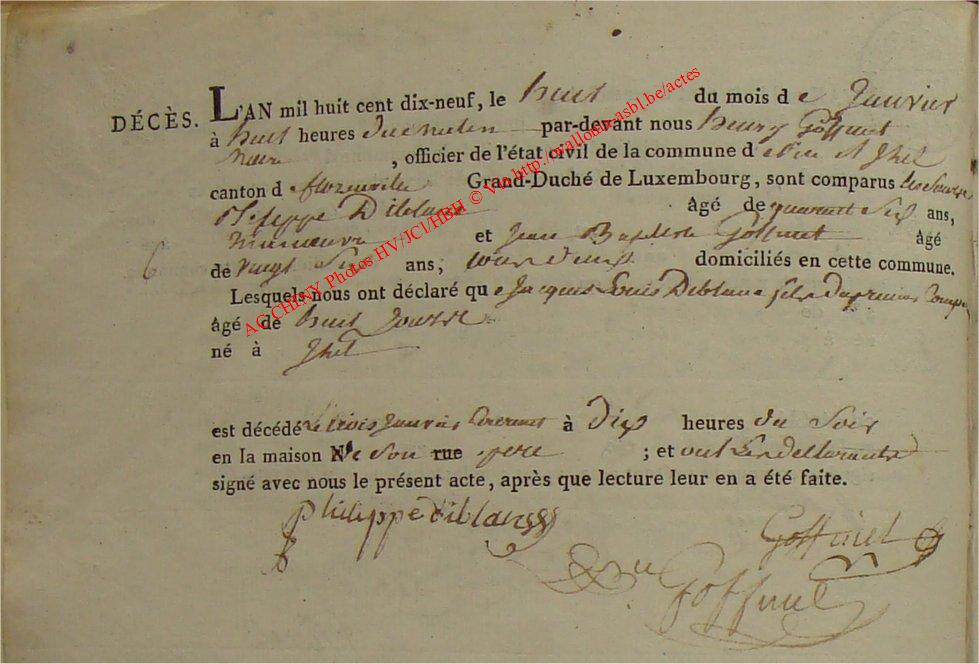 DÉCÈS. L'AN mil huit cent dix-neuf, le huit du mois d e Janvier
à huit heures du matin par-devant nous henry Goffinet
maire , officier de l'état civil de la commune d
canton d e florenville Grand-Duché de Luxembourg, sont comparus les sieurs
Philippe Diblanc Âgé de quarant six ans,
et Jean Baptiste Goffinet âgé
de vingt six ans, tous deux domiciliés en cette commune.
6
Lesquels nous ont déclaré qu e Jacques Louis Diblanc fils du premier comp
âgé de huit jours
né à Izel
est décédé Le trois janvier courant à Dix heures du Soir
en la maison Nº de Son rue pere ; et ont Les dellarants
signé avec nous le présent acte, après que lecture leur en a été faite.
philippe diblanc
Goffinet
Goffinet
AC CHINY Photos HV/JCI/HBH © Via http://wallonia-asbl.be/actes